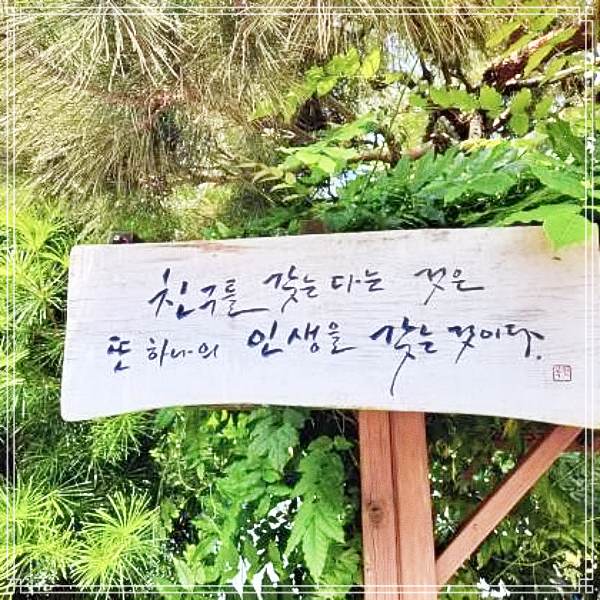 친구를 갖는다는 것은
또 하나의 인생을 갖는 것이다.